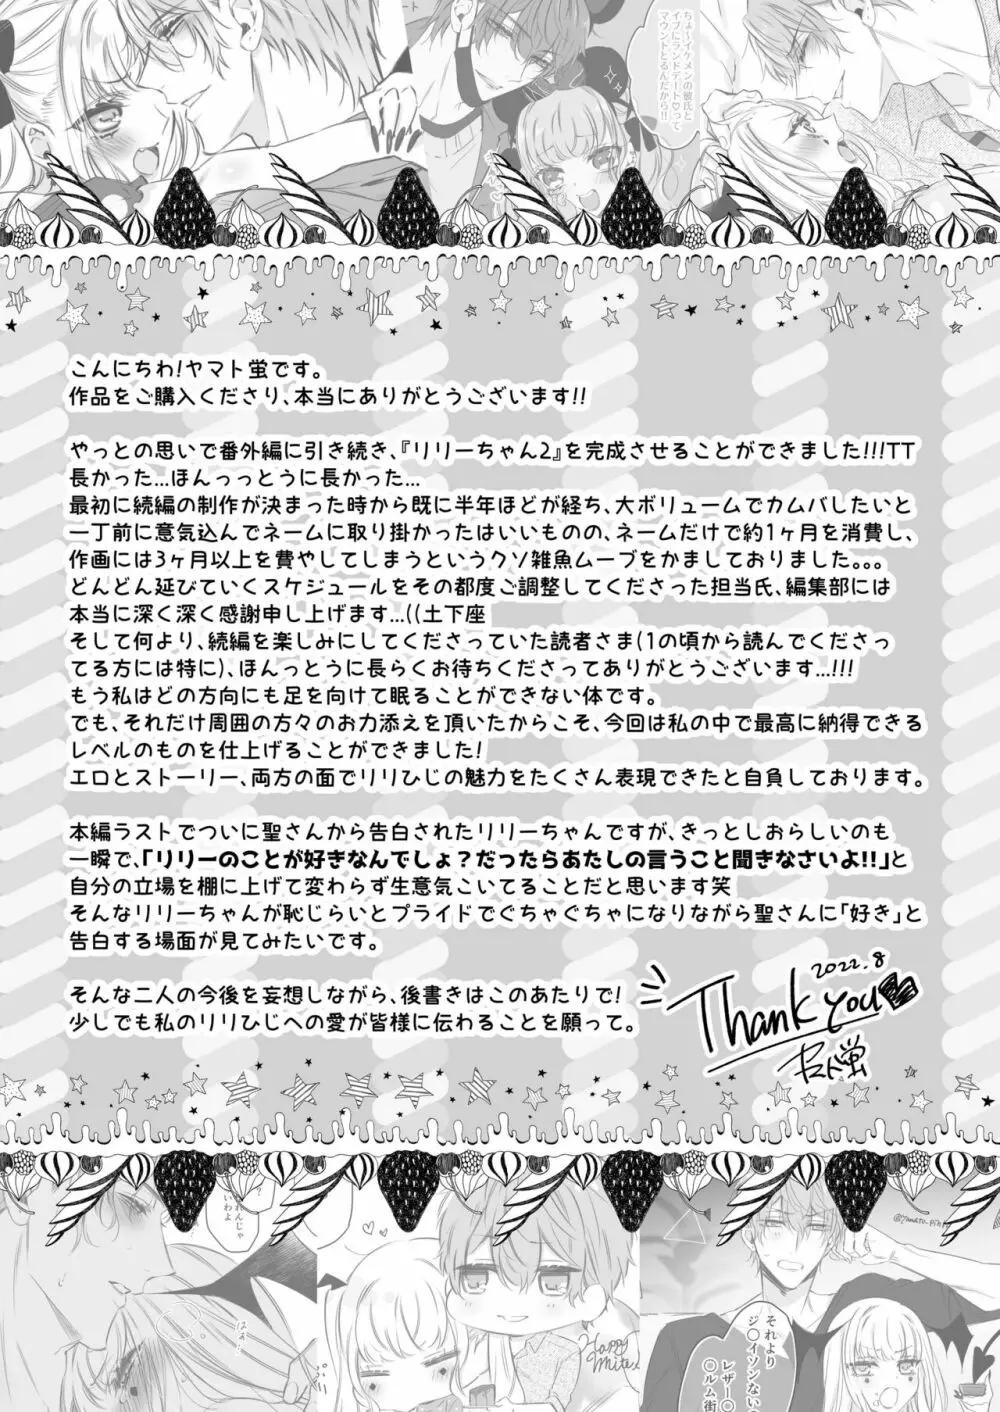 ちょ〜イケメンの彼氏と
イブにランドデート♡って
マウントとるんだから!!
こんにちわ!ヤマト蛍です。
作品をご購入くださり、本当にありがとうございます!!
やっとの思いで番外編に引き続き、『リリーちゃん2』を完成させることができました!!!TT
長かった...ほんっっとうに長かった...
最初に続編の制作が決まった時から既に半年ほどが経ち、大ボリュームでカムバしたいと
一丁前に意気込んでネームに取り掛かったはいいものの、ネームだけで約1ヶ月を消費し、
作画には3ヶ月以上を費やしてしまうというクソ雑魚ムーブをかましておりました。。。
どんどん延びていくスケジュールをその都度ご調整してくださった担当氏、編集部には
本当に深く深く感謝申し上げます...((土下座
そして何より、続編を楽しみにしてくださっていた読者さま(1の頃から読んでくださっ
てる方には特に)、ほんっとうに長らくお待ちくださってありがとうございます...!!!
もう私はどの方向にも足を向けて眠ることができない体です。
でも、それだけ周囲の方々のお力添えを頂いたからこそ、今回は私の中で最高に納得できる
レベルのものを仕上げることができました!
エロとストーリー、両方の面でリリひじの魅力をたくさん表現できたと自負しております。
本編ラストでついに聖さんから告白されたリリーちゃんですが、きっとしおらしいのも
一瞬で、「リリーのことが好きなんでしょ?だったらあたしの言うこと聞きなさいよ!!」と
自分の立場を棚に上げて変わらず生意気こいてることだと思います笑
そんなリリーちゃんが恥じらいとプライドでぐちゃぐちゃになりながら聖さんに「好き」と
告白する場面が見てみたいです。
そんな二人の今後を妄想しながら、後書きはこのあたりで!
少しでも私のリリひじへの愛が皆様に伝わることを願って。
2022.8
Thank you
ヤマト蛍
はぁ
Happy
それより
ジ〇イソンないの
レザー〇
〇ルム街